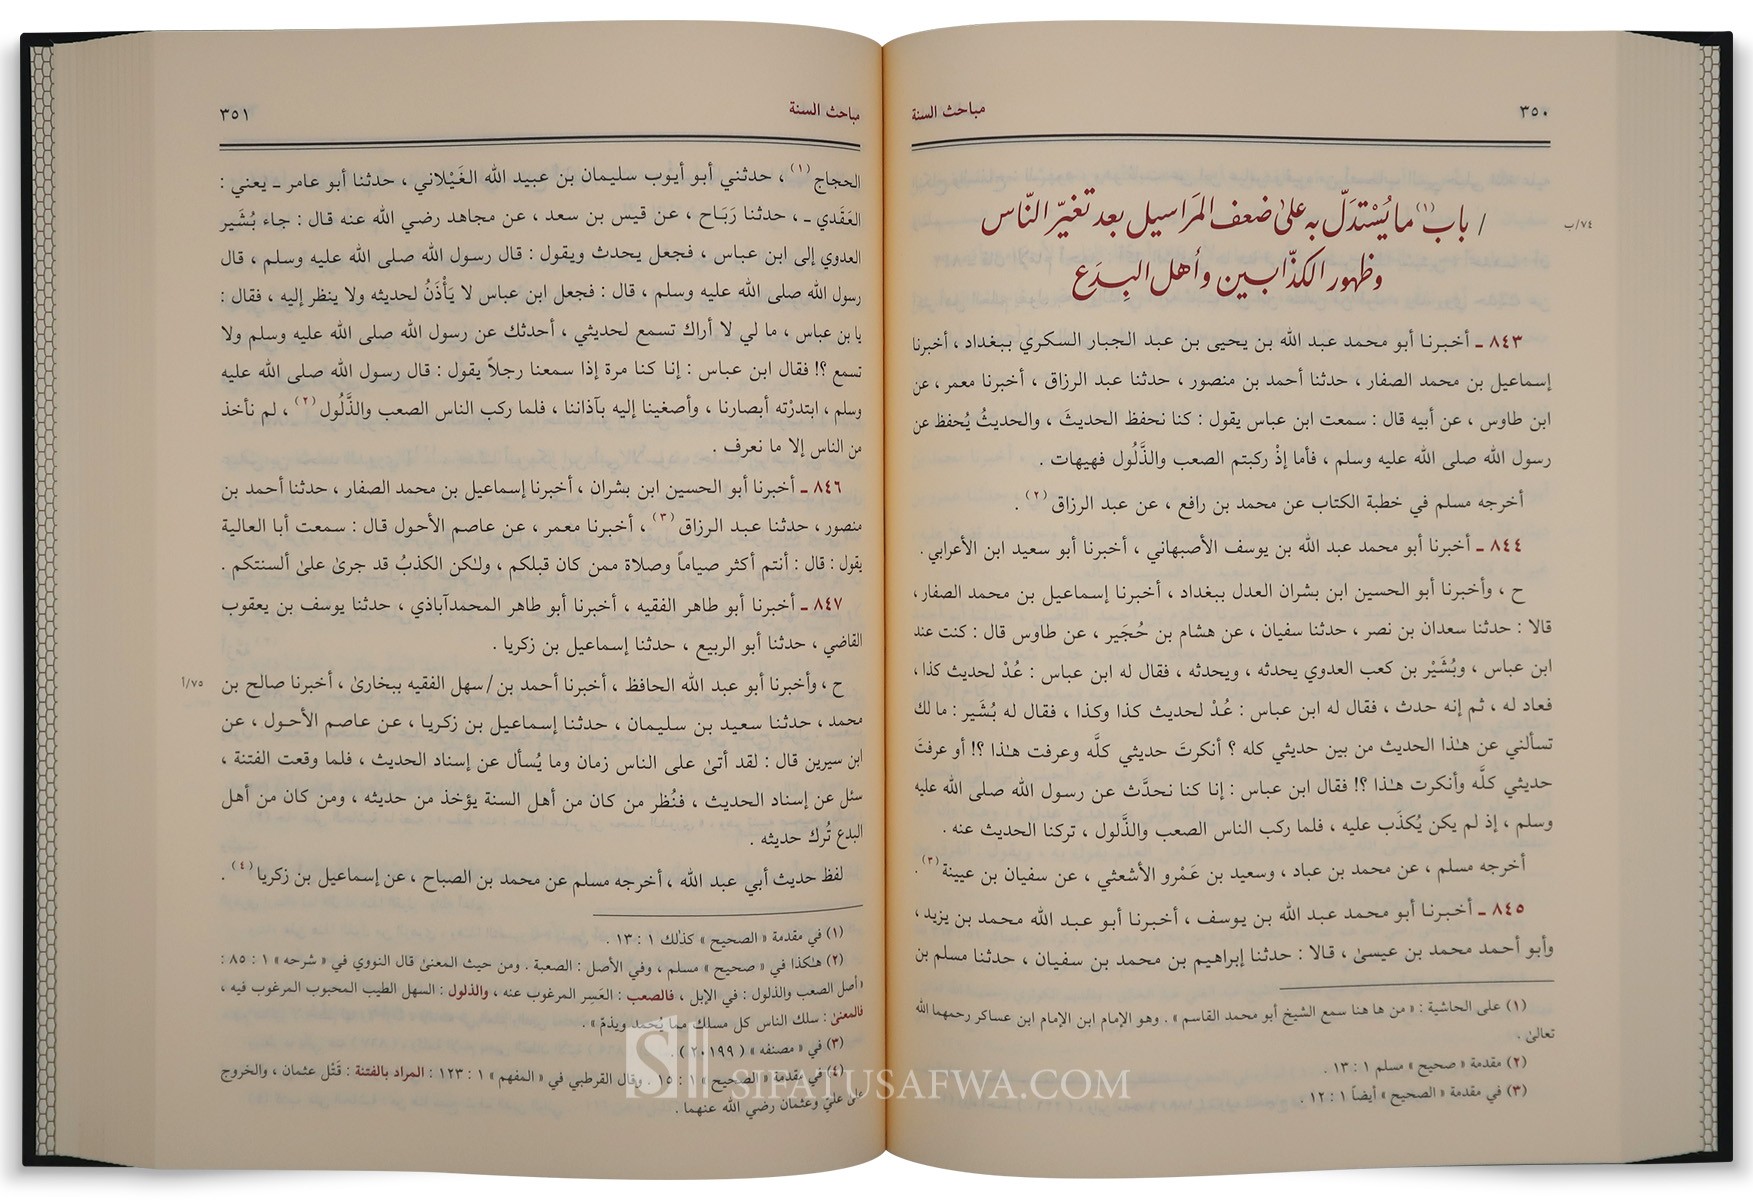 ٣٥٠
مباحث السنة
٧٤/ب
/ باب(١) ما يُسْتدَلّ به على ضعف المَراسيل بعد تغيّر النّاس
وظهور الكذّابين وأهل البِدَع
٨٤٣ ـ أخبرنا أبو محمد عبد الله بن يحيى بن عبد الجبار السكري ببغداد ، أخبرنا
إسماعيل بن محمد الصفار ، حدثنا أحمد بن منصور ، حدثنا عبد الرزاق ، أخبرنا معمر ، عن
ابن طاوس ، عن أبيه قال : سمعت ابن عباس يقول : كنا نحفظ الحديثَ ، والحديثُ يُحفظ عن
رسول الله صلى الله عليه وسلم ، فأما إذْ ركبتم الصعب والذَّلُول فهيهات .
أخرجه مسلم في خطبة الكتاب عن محمد بن رافع ، عن عبد الرزاق(٢) .
٨٤٤ ـ أخبرنا أبو محمد عبد الله بن يوسف الأصبهاني ، أخبرنا أبو سعيد ابن الأعرابي .
ح ، وأخبرنا أبو الحسين ابن بشران العدل ببغداد ، أخبرنا إسماعيل بن محمد الصفار ،
قالا : حدثنا سعدان بن نصر ، حدثنا سفيان ، عن هشام بن حُجَير ، عن طاوس قال : كنت عند
ابن عباس ، وبُشَيْر بن كعب العدوي يحدثه ، ويحدثه ، فقال له ابن عباس : عُدْ لحديث كذا ،
فعاد له ، ثم إنه حدث ، فقال له ابن عباس : عُدْ لحديث كذا وكذا ، فقال له بُشَير : ما لك
تسألني عن هـٰذا الحديث من بين حديثي كله ؟ أنكرتَ حديثي كلَّه وعرفت هـٰذا ؟! أو عرفتَ
حديثي كلَّه وأنكرت هـٰذا ؟! فقال ابن عباس : إنا كنا نحدَّث عن رسول الله صلى الله عليه
وسلم ، إذ لم يكن يُكذَب عليه ، فلما ركب الناس الصعب والذَّلول ، تركنا الحديث عنه .
أخرجه مسلم ، عن محمد بن عباد ، وسعيد بن عَمْرو الأشعثي ، عن سفيان بن عيينة(٣) .
٨٤٥ ـ أخبرنا أبو محمد عبد الله بن يوسف ، أخبرنا أبو عبد الله محمد بن يزيد ،
وأبو أحمد محمد بن عيسىٰ ، قالا : حدثنا إبراهيم بن محمد بن سفيان ، حدثنا مسلم بن
(١) على الحاشية : « من ها هنا سمع الشيخ أبو محمد القاسم » . وهو الإمام ابن الإمام ابن عساكر رحمهما الله
تعالىٰ .
(٢) مقدمة « صحيح » مسلم ١ : ١٣ .
(٣) في مقدمة « الصحيح » أيضاً ١ : ١٢ .
مباحث السنة
٣٥١
الحجاج(١) ، حدثني أبو أيوب سليمان بن عبيد الله الغَيْلاني ، حدثنا أبو عامر ـ يعني :
العَقَدي ـ ، حدثنا رَبَاح ، عن قيس بن سعد ، عن مجاهد رضي الله عنه قال : جاء بُشَير
العدوي إلى ابن عباس ، فجعل يحدث ويقول : قال رسول الله صلى الله عليه وسلم ، قال
رسول الله صلى الله عليه وسلم ، قال : فجعل ابن عباس لا يَأْذَنُ لحديثه ولا ينظر إليه ، فقال :
يا بن عباس ، ما لي لا أراك تسمع لحديثي ، أحدثك عن رسول الله صلى الله عليه وسلم ولا
تسمع ؟! فقال ابن عباس : إنا كنا مرة إذا سمعنا رجلاً يقول : قال رسول الله صلى الله عليه
وسلم ، ابتدرْته أبصارنا ، وأصغينا إليه بآذاننا ، فلما ركب الناس الصعب والذَّلُول(٢) ، لم نأخذ
من الناس إلا ما نعرف .
٨٤٦ ـ أخبرنا أبو الحسين ابن بشران ، أخبرنا إسماعيل بن محمد الصفار ، حدثنا أحمد بن
منصور ، حدثنا عبد الرزاق(٣) ، أخبرنا معمر ، عن عاصم الأحول قال : سمعت أبا العالية
يقول : قال : أنتم أكثر صياماً وصلاة ممن كان قبلكم ، ولـٰكن الكذبُ قد جرىٰ علىٰ ألسنتكم .
٨٤٧ ـ أخبرنا أبو طاهر الفقيه ، أخبرنا أبو طاهر المحمدآباذي ، حدثنا يوسف بن يعقوب
القاضي ، حدثنا أبو الربيع ، حدثنا إسماعيل بن زكريا .
ح ، وأخبرنا أبو عبد الله الحافظ ، أخبرنا أحمد بن/ سهل الفقيه ببخارىٰ ، أخبرنا صالح بن
٧٥/أ
محمد ، حدثنا سعيد بن سليمان ، حدثنا إسماعيل بن زكريا ، عن عاصم الأحول ، عن
ابن سيرين قال : لقد أتىٰ على الناس زمان وما يُسأل عن إسناد الحديث ، فلما وقعت الفتنة ،
سئل عن إسناد الحديث ، فنُظر من كان من أهل السنة يؤخذ من حديثه ، ومن كان من أهل
البدع تُرك حديثه .
لفظ حديث أبي عبد الله ، أخرجه مسلم عن محمد بن الصباح ، عن إسماعيل بن زكريا(٤) .
(١) في مقدمة « الصحيح » كذلك ١ : ١٣ .
(٢) هـٰكذا في « صحيح » مسلم ، وفي الأصل : الصعبة . ومن حيث المعنىٰ قال النووي في « شرحه » ١ : ٨٥ :
« أصل الصعب والذلول : في الإبل ، فالصعب : العَسِر المرغوب عنه ، والذلول : السهل الطيب المحبوب المرغوب فيه ،
فالمعنىٰ : سلك الناس كل مسلك مما يُحمد ويذمّ » .
(٣) في « مصنفه » ( ٢٠١٩٩ ) .
(٤) في مقدمة « الصحيح » ١ : ١٥ . وقال القرطبي في « المفهم » ١ : ١٢٣ : المراد بالفتنة : قَتْل عثمان ، والخروج
على عليّ وعثمان رضي الله عنهما .
SIFATUSAFWA.COM